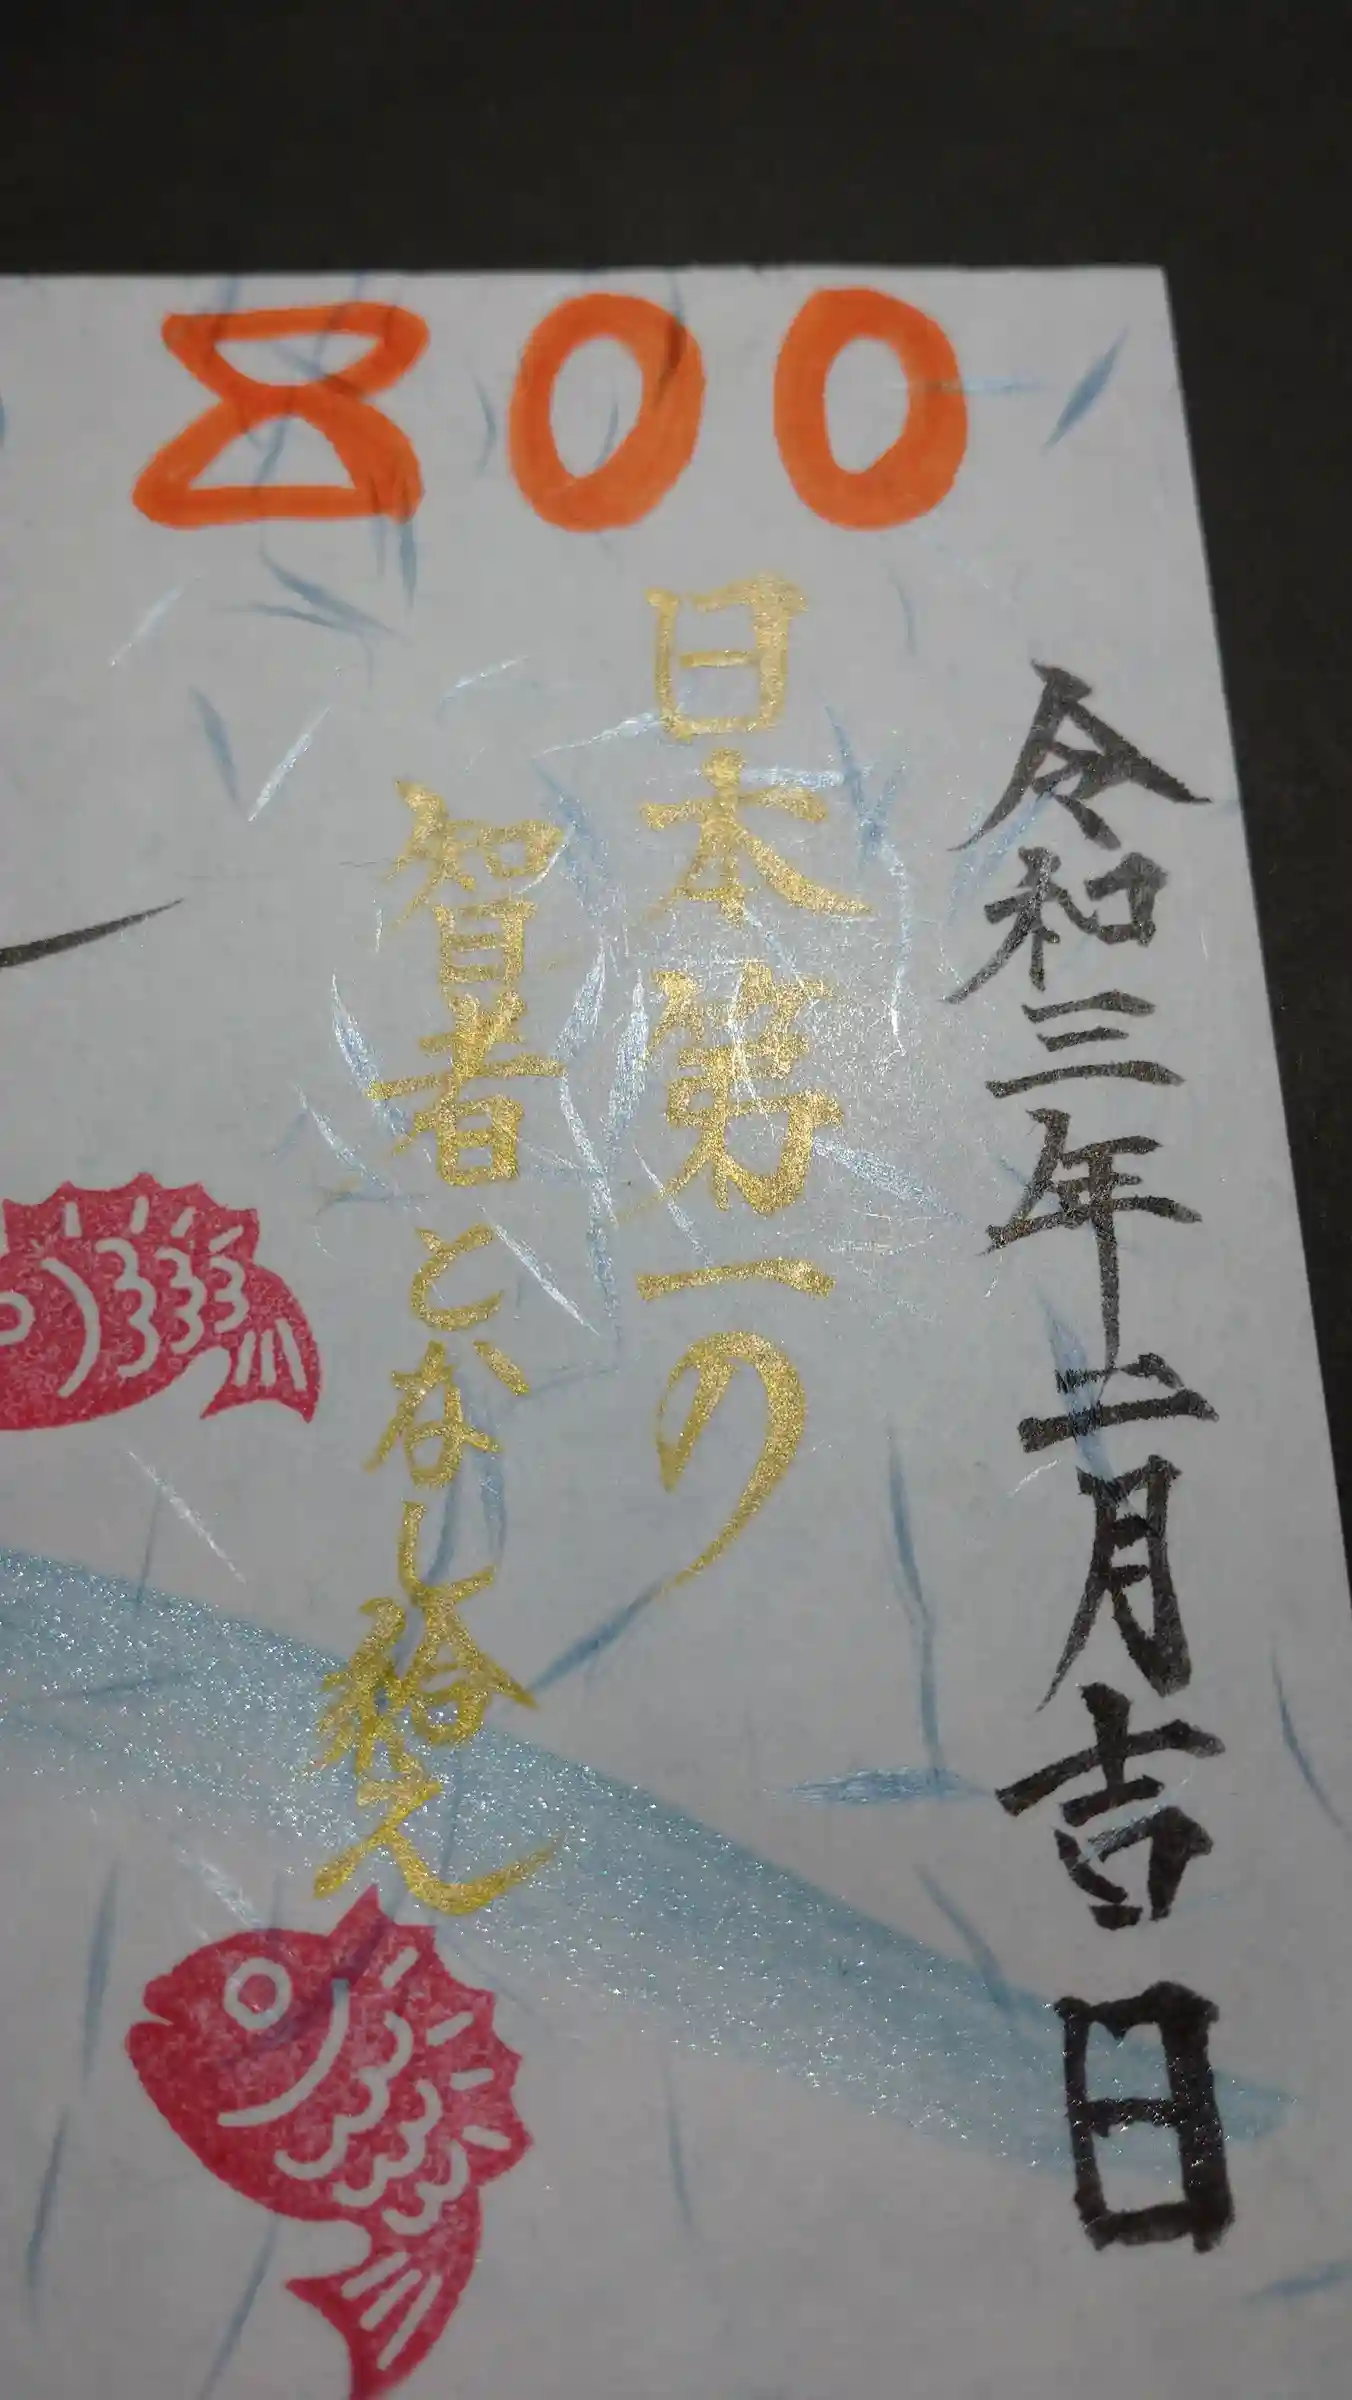 800
令和三年十二月吉日
日本第一の
智者となし給え